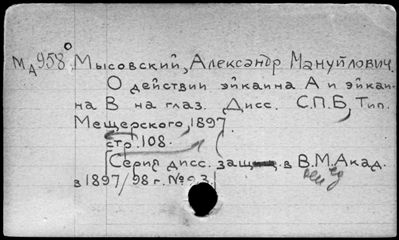 МА958° Мысовский, Александр Мануйлович.
О действии эйкаина А и эйкаи-
на В на глаз. Дисс. С.П.Б, Тип.
Мещерского, 1897
стр. 108.
(Серия дисс. защ. в В.М.Акад.
в 1897/98 г. № 93)